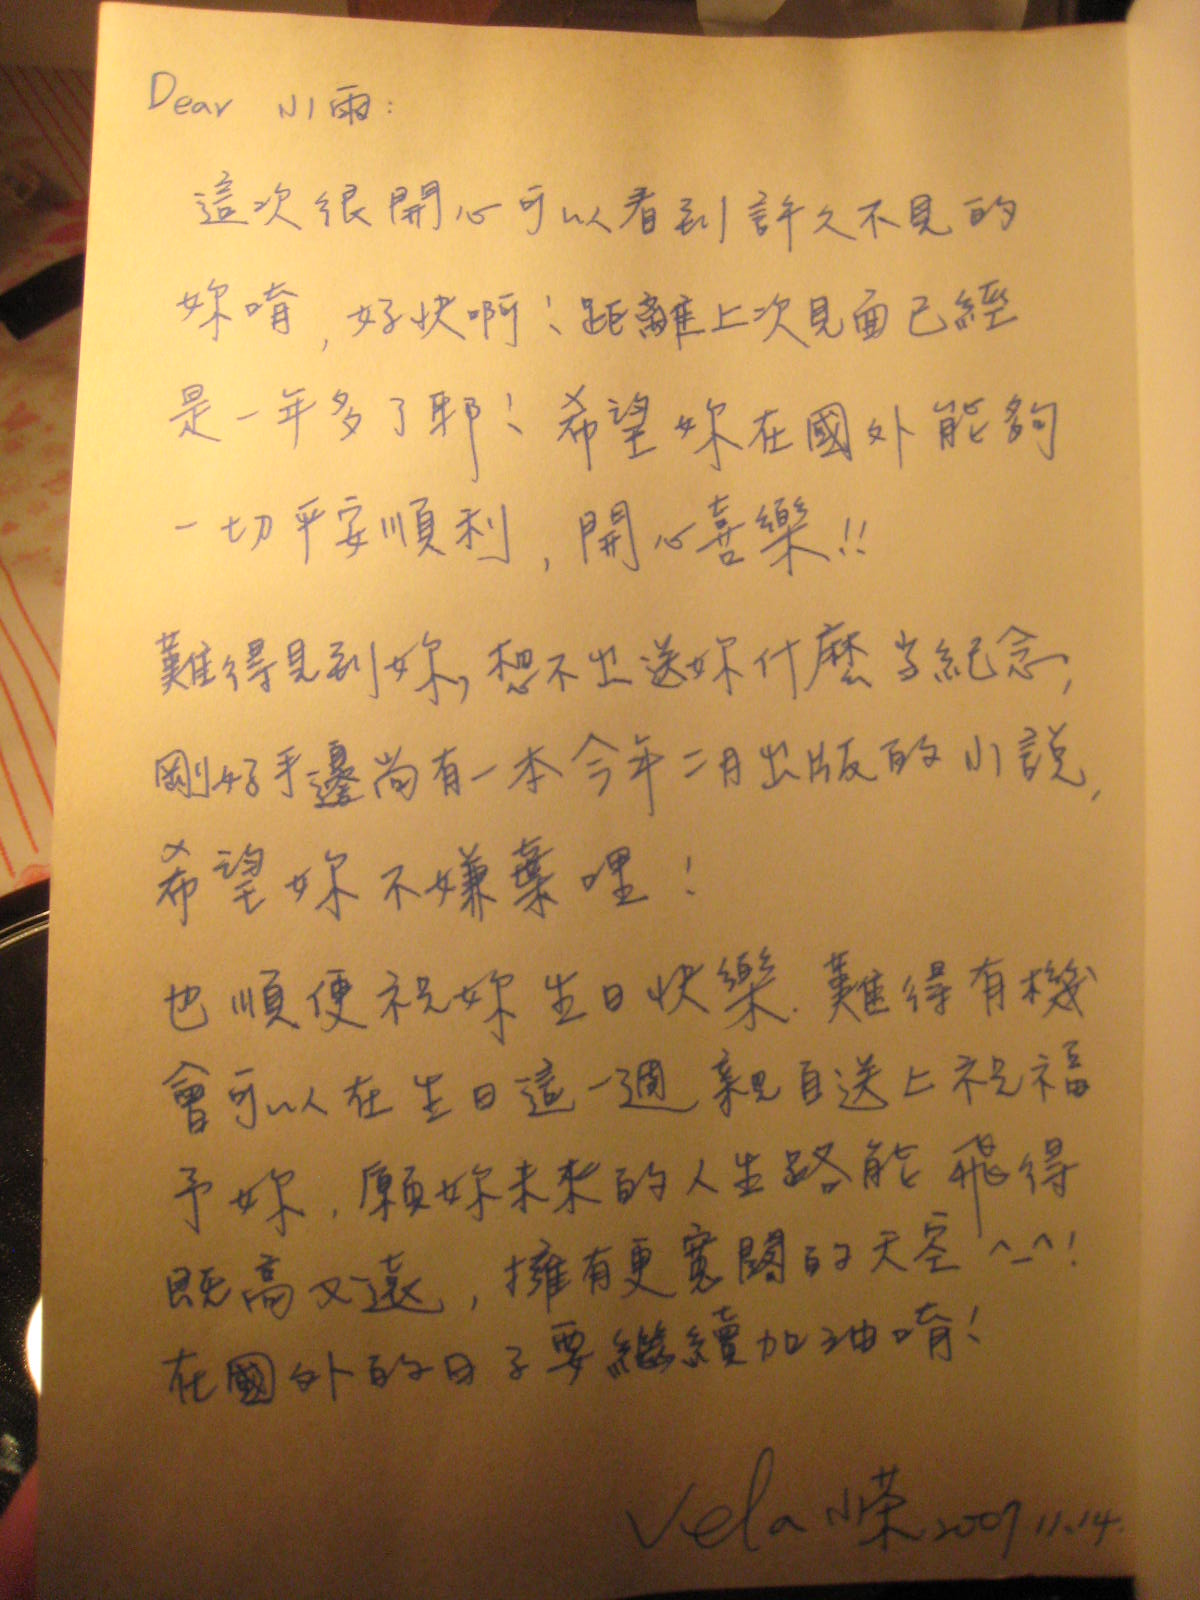 Dear 小雨:
這次很開心可以看到許久不見的
妳唷,好快啊!距離上次見面已經
是一年多了耶!希望妳在國外能夠
一切平安順利,開心喜樂!!
難得見到妳,想不出送妳什麼當紀念,
剛好手邊尚有一本今年二月出版的小說,
希望妳不嫌棄哩!
也順便祝妳生日快樂.難得有機
會可以在生日這一週親自送上祝福
予妳,願妳未來的人生路能飛得
既高又遠,擁有更寬闊的天空^_^!
在國外的日子要繼續加油唷!
Vela 小榮 2009 11.14.